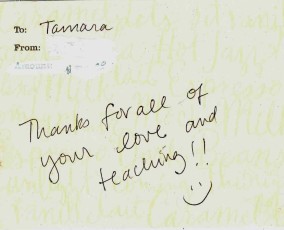 To: Tamara
From:
Thanks for all of
your love and
teaching!!
:)